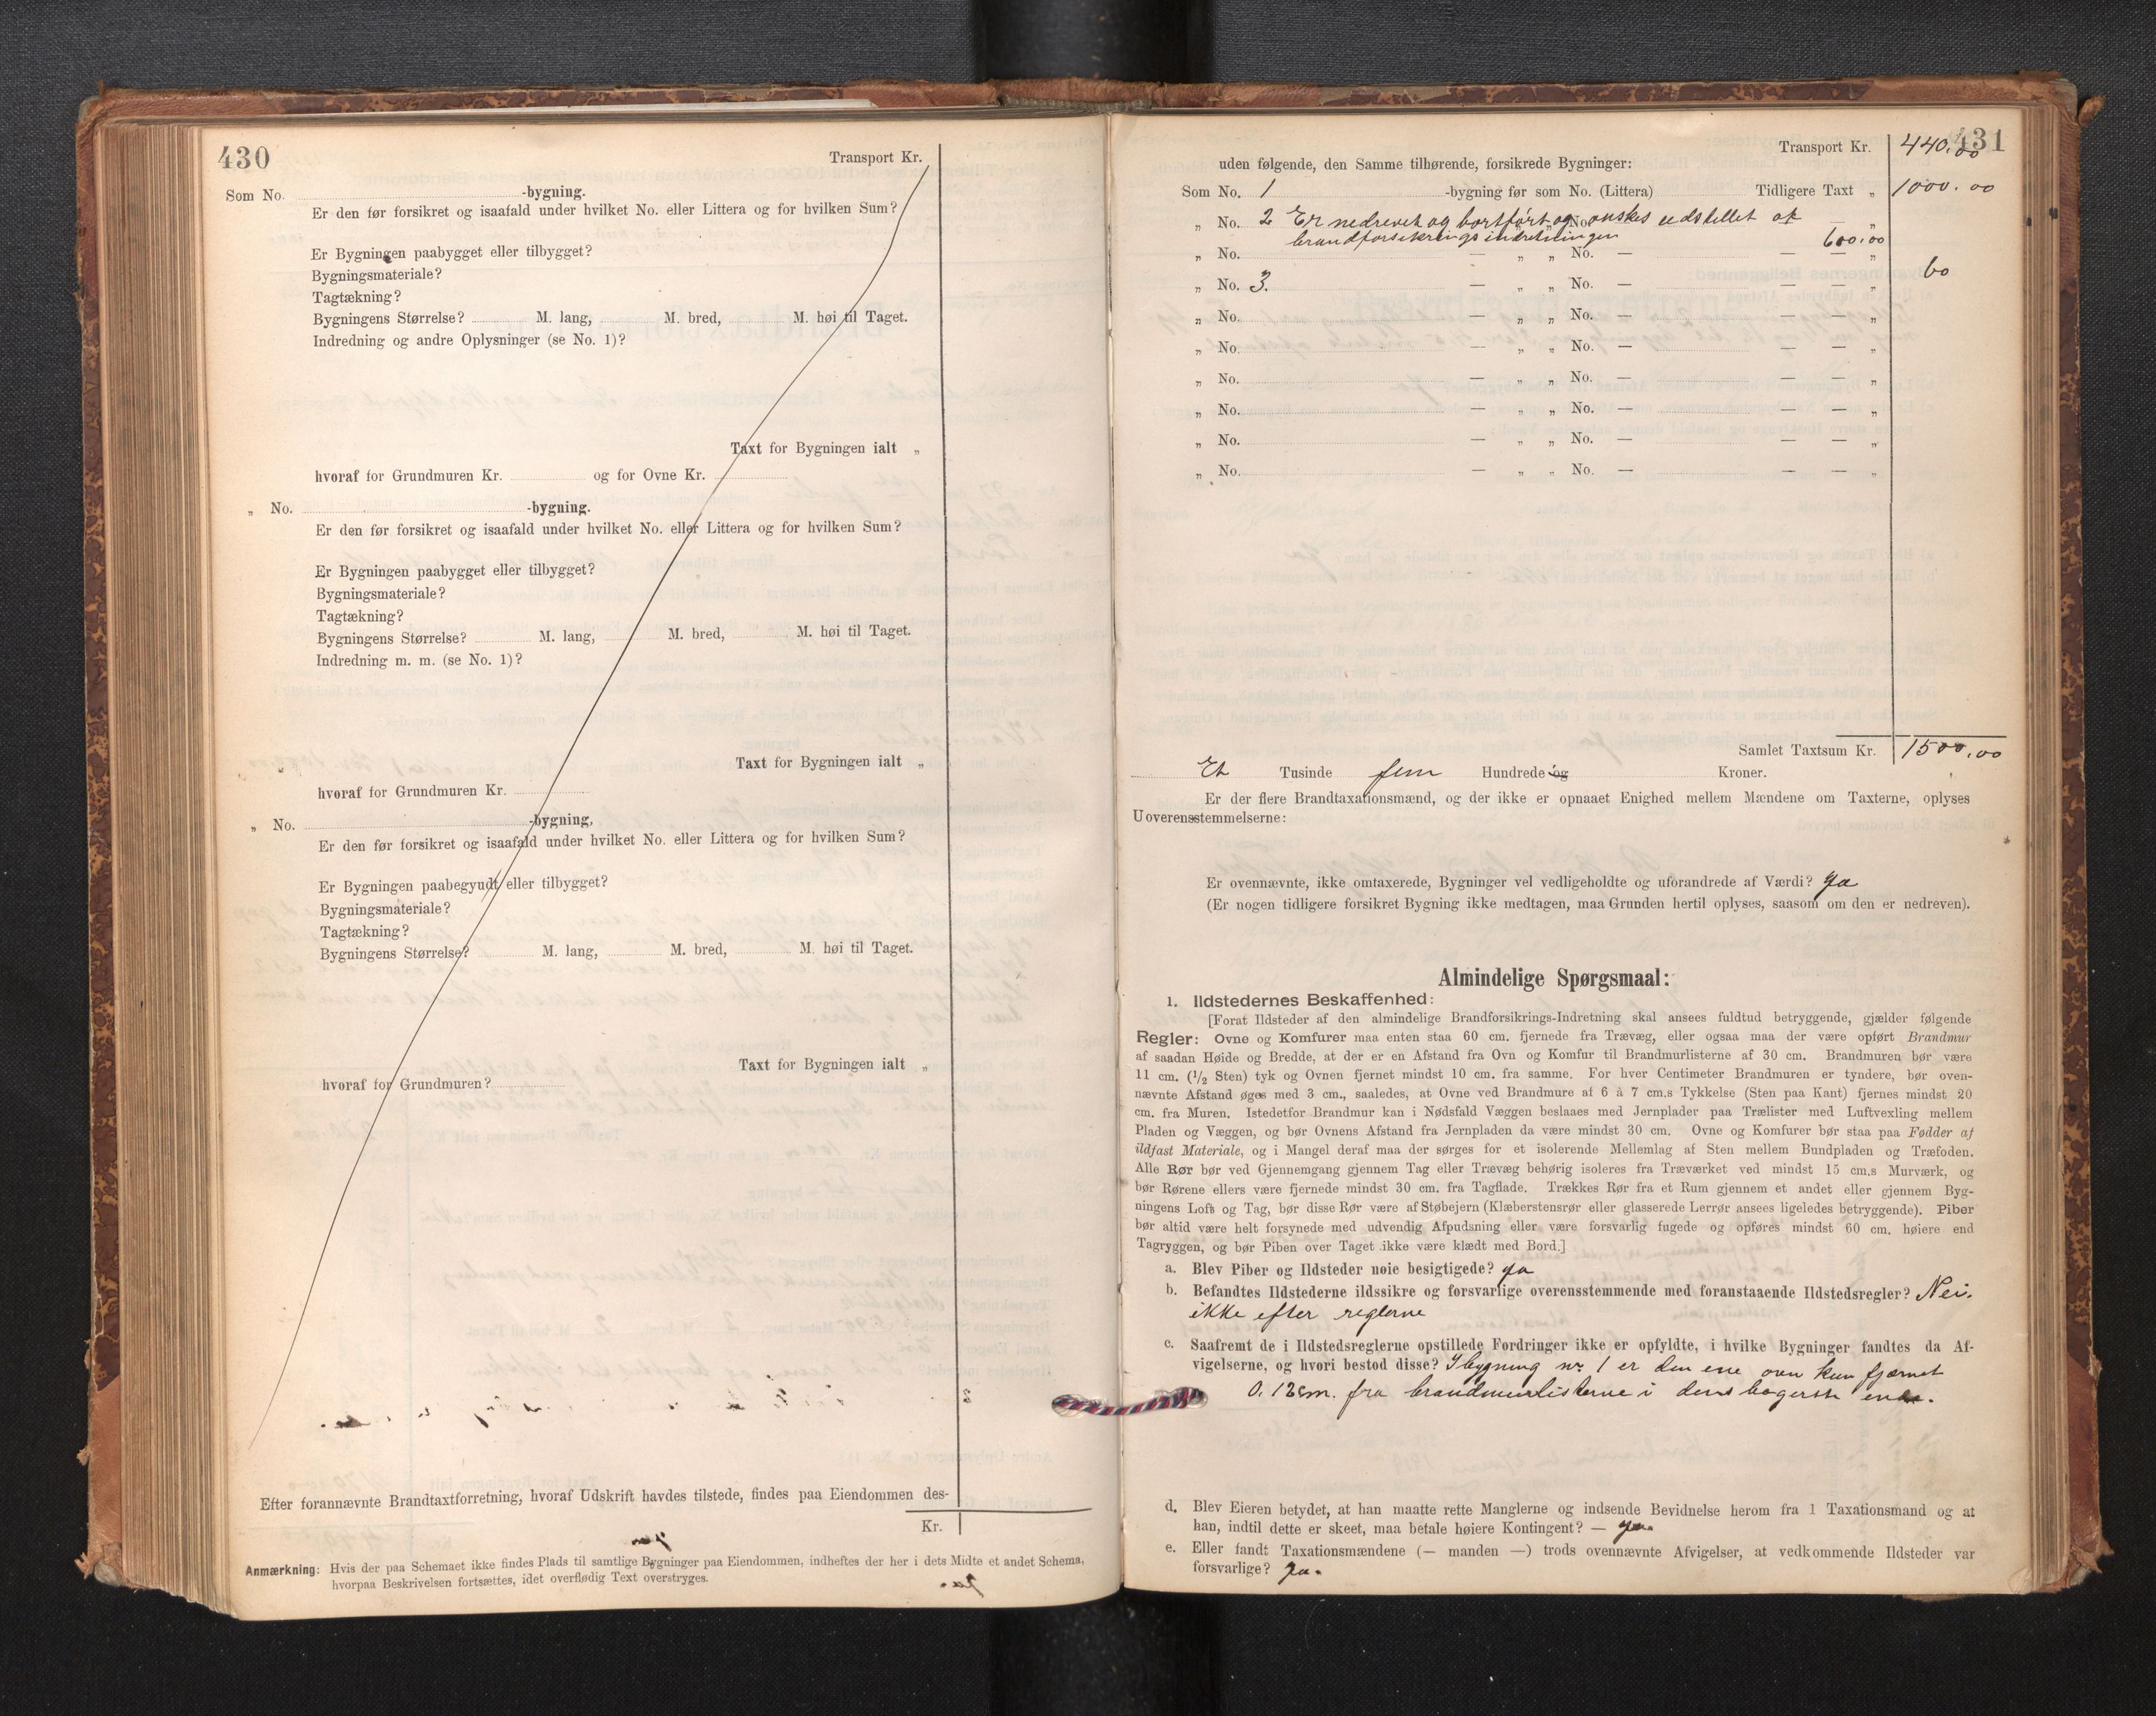 430
Transport Kr.
Som No. -bygning.
Er den før forsikret og isaafald under hvilket No. eller Littera og for hvilken Sum?
Er Bygningen paabygget eller tilbygget?
Bygningsmateriale?
Tagtækning?
Bygningens Størrelse? M. lang, M. bred, M. høi til Taget.
Indredning og andre Oplysninger (se No. 1)?
Taxt for Bygningen ialt „
hvoraf for Grundmuren Kr. og for Ovne Kr.
„ No. -bygning.
Er den før forsikret og isaafald under hvilket No. eller Littera og for hvilken Sum?
Er Bygningen paabygget eller tilbygget?
Bygningsmateriale?
Tagtækning?
Bygningens Størrelse? M. lang, M. bred, M. høi til Taget.
Indredning m. m. (se No. 1)?
Taxt for Bygningen ialt „
hvoraf for Grundmuren Kr.
„ No. -bygning,
Er den før forsikret og isaafald under hvilket No. eller Littera og for hvilken Sum?
Er Bygningen paabegyndt eller tilbygget?
Bygningsmateriale?
Tagtækning?
Bygningens Størrelse? M. lang, M. bred, M. høi til Taget.
Taxt for Bygningen ialt „
hvoraf for Grundmuren?
Efter forannævnte Brandtaxtforretning, hvoraf Udskrift havdes tilstede, findes paa Eiendommen des-
Kr.
Anmærkning: Hvis der paa Schemaet ikke findes Plads til samtlige Bygninger paa Eiendommen, indheftes der her i dets Midte et andet Schema,
hvorpaa Beskrivelsen fortsættes, idet overflødig Text overstryges.
431
Transport Kr. 440,00
uden følgende, den Samme tilhørende, forsikrede Bygninger:
Som No. 1 -bygning før som No. (Littera) Tidligere Taxt „ 1000.00
„ No. 2 Er nedrevet og bortført og ønskes udstellet af
brandforsikringsindretningen 600,00
„ No. — „ „ No. — — — „
„ No. 3. — „ „ No. — — — „ 60
„ No. — „ „ No. — — — „
„ No. — „ „ No. — — — „
„ No. — „ „ No. — — — „
„ No. — „ „ No. — — — „
„ No. — „ „ No. — — — „
„ No. — „ „ No. — — — „
Samlet Taxtsum Kr. 1500,00
Et Tusinde fem Hundrede og Kroner.
Er der flere Brandtaxationsmænd, og der ikke er opnaaet Enighed mellem Mændene om Taxterne, oplyses
Uoverensstemmelserne:
Er ovennævnte, ikke omtaxerede, Bygninger vel vedligeholdte og uforandrede af Værdi? Ja
(Er nogen tidligere forsikret Bygning ikke medtagen, maa Grunden hertil oplyses, saasom om den er nedreven).
Almindelige Spørgsmaal:
1. Ildstedernes Beskaffenhed:
[Forat Ildsteder af den almindelige Brandforsikrings-Indretning skal ansees fuldtud betryggende, gjælder følgende
Regler: Ovne og Komfurer maa enten staa 60 cm. fjernede fra Trævæg, eller ogsaa maa der være opført Brandmur
af saadan Høide og Bredde, at der er en Afstand fra Ovn og Komfur til Brandmurlisterne af 30 cm. Brandmuren bør være
11 cm. (1/2 Sten) tyk og Ovnen fjernet mindst 10 cm. fra samme. For hver Centimeter Brandmuren er tyndere, bør oven-
nævnte Afstand øges med 3 cm., saaledes, at Ovne ved Brandmure af 6 à 7 cm.s Tykkelse (Sten paa Kant) fjernes mindst 20
cm. fra Muren. Istedetfor Brandmur kan i Nødsfald Væggen beslaaes med Jernplader paa Trælister med Luftvexling mellem
Pladen og Væggen, og bør Ovnens Afstand fra Jernpladen da være mindst 30 cm. Ovne og Komfurer bør staa paa Fødder af
ildfast Materiale, og i Mangel deraf maa der sørges for et isolerende Mellemlag af Sten mellem Bundpladen og Træfoden.
Alle Rør bør ved Gjennemgang gjennem Tag eller Trævæg behørig isoleres fra Træværket ved mindst 15 cm.s Murværk, og
bør Rørene ellers være fjernede mindst 30 cm. fra Tagflade. Trækkes Rør fra et Rum gjennem et andet eller gjennem Byg-
ningens Loft og Tag, bør disse Rør være af Støbejern (Klæberstensrør eller glasserede Lerrør ansees ligeledes betryggende). Piber
bør altid være helt forsynede med udvendig Afpudsning eller være forsvarlig fugede og opføres mindst 60 cm. høiere end
Tagryggen, og bør Piben over Taget ikke være klædt med Bord.]
a. Blev Piber og Ildsteder nøie besigtigede? Ja
b. Befandtes Ildstederne ildssikre og forsvarlige overensstemmende med foranstaaende Ildstedsregler? Nei.
ikke efter reglerne
c. Saafremt de i Ildstedsreglerne opstillede Fordringer ikke er opfyldte, i hvilke Bygninger fandtes da Af-
vigelserne, og hvori bestod disse? I bygning no 1 er den ene oven kun fjærnet
0.12 cm. fra brandmurlisterne i dens bagerste ende.
d. Blev Eieren betydet, at han maatte rette Manglerne og indsende Bevidnelse herom fra 1 Taxationsmand og at
han, indtil dette er skeet, maa betale høiere Kontingent? — Ja.
e. Eller fandt Taxationsmændene (— manden —) trods ovennævnte Afvigelser, at vedkommende Ildsteder var
forsvarlige? Ja.